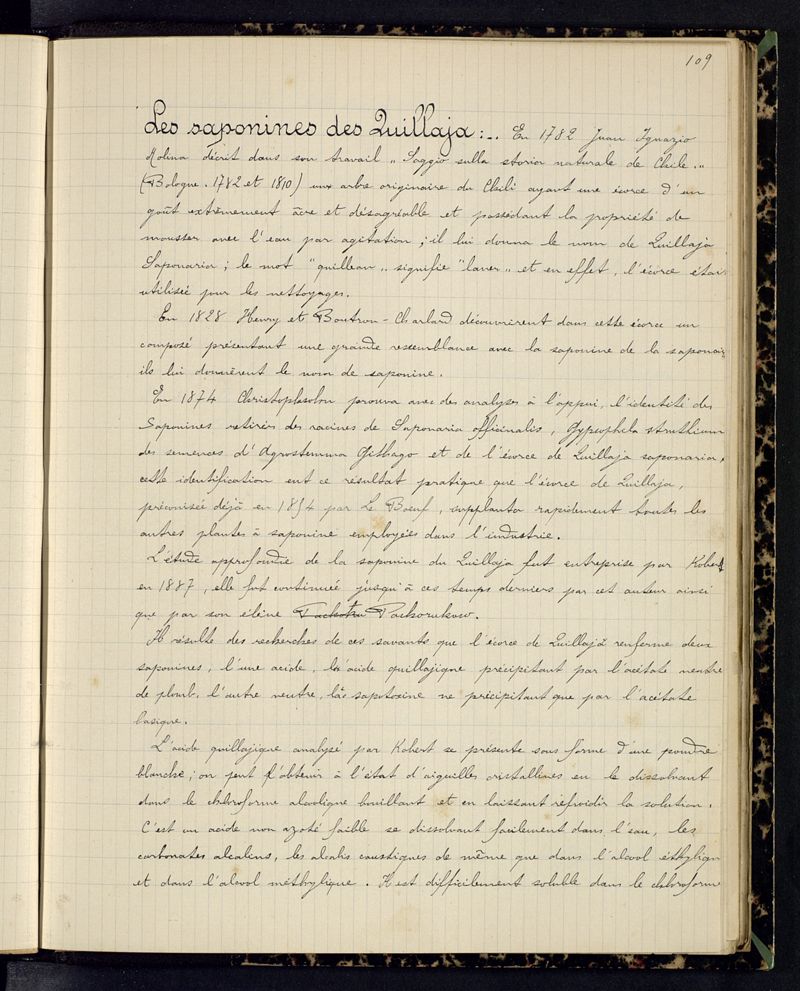 109
Les saponines des Quillaja :.. En 1782 Juan Ignazio
Molina décrit dans son travail „ Saggio sulla storia naturale de Chile. "
(Bologne. 1782 et 1810) un arbre originaire du Chili ayant une écorce d'un
goût extrêmement âcre et désagréable et possédant la propriété de
mousser avec l'eau par agitation ; il lui donna le nom de Quillaja
Saponaria ; le mot "quillean „ signifie "laver „ et en effet, l'écorce était
utilisée pour les nettoyages.
En 1828 Henry et Boutron-Charlard découvrirent dans cette écorce un
composé présentant une grande ressemblance avec la saponine de la saponair
ils lui donnèrent le nom de saponine.
En 1874 Christophsohn prouva avec des analyses à l'appui, l'identité des
Saponines retirées des racines de Saponaria officinalis, Gypsophila struthium
des semences d'Agrostemma Githago et de l'écorce de Quillaja saponaria,
cette identification eut ce résultat pratique que l'écorce de Quillaja,
préconisée déjà en 1854 par Le Bœuf, supplanta rapidement toutes les
autres plantes à saponine employées dans l'industrie.
L'étude approfondie de la saponine du Quillaja fut entreprise par Kobert
en 1887, elle fut continuée jusqu'à ces temps derniers par cet auteur ainsi
que par son élève Pachorukow.
Il résulte des recherches de ces savants que l'écorce de Quillaja renferme deux
saponines, l'une acide, l'acide quillajique précipitant par l'acétate neutre
de plomb, l'autre neutre, la sapotoxine ne précipitant que par l'acétate
basique.
L'acide quillajique analysé par Kobert se présente sous forme d'une poudre
blanche ; on peut l'obtenir à l'état d'aiguilles cristallines en le dissolvant
dans le chloroforme alcoolique bouillant et en laissant refroidir la solution.
C'est un acide non azoté faible se dissolvant facilement dans l'eau, les
carbonates alcalins, les alcalis caustiques de même que dans l'alcool éthylique
et dans l'alcool méthylique. Il est difficilement soluble dans le chloroforme